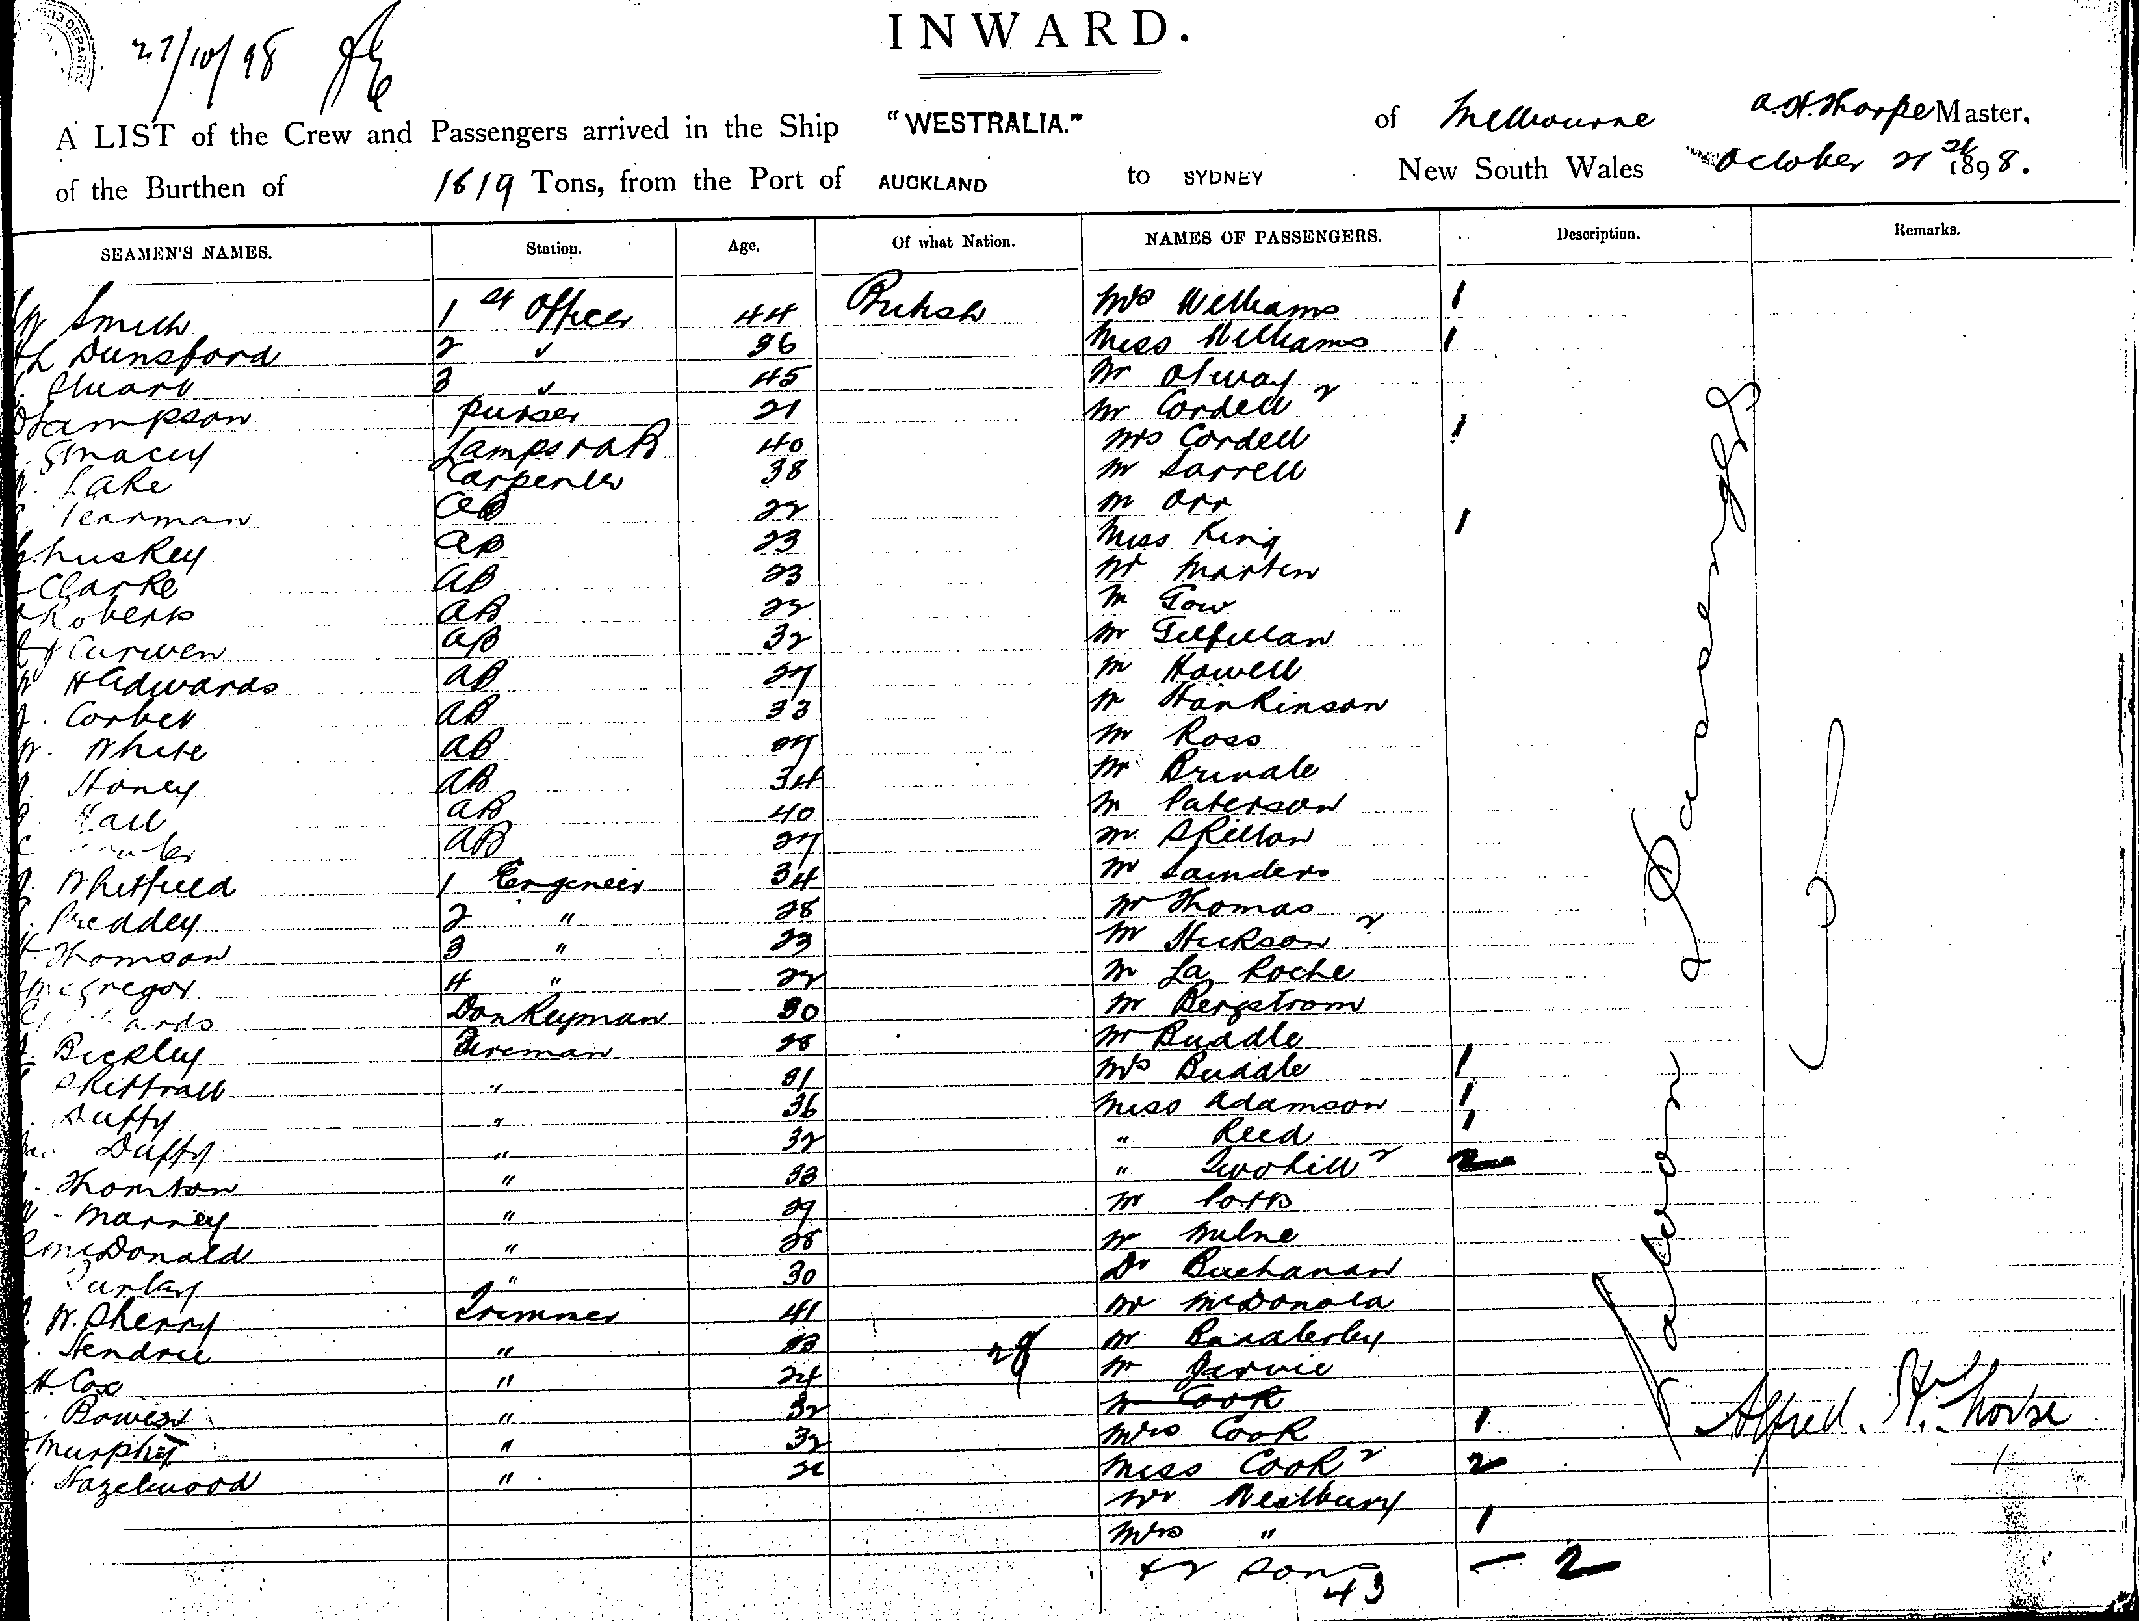 27/10/98
INWARD.
A LIST of the Crew and Passengers arrived in the Ship "WESTRALIA." of Melbourne A.H. Thorpe Master,
of the Burthen of 1819 Tons, from the Port of AUCKLAND to SYDNEY New South Wales October 21st 1898.
SEAMEN'S NAMES. Station. Age. Of what Nation. NAMES OF PASSENGERS. Description. Remarks.
W Smith 1 st Officer 44 British Mrs Williams 1
L Dunsford 2 " 36 Miss Williams 1
3 " 45 Mr Otway
Sampson Purser 21 Mr Cordell 2
Stacey Lamps 40 Mrs Cordell 1
Lake Carpenter 38 Mr Sarrell
Pearman AB 22 Mr Orr
AB 23 Miss King 1
Clarke AB 23 Mr Marten
Roberts AB 22 Mr Gow
Curwen AB 32 Mr Gilfillan
H Edwards AB 27 Mr Howell
J. Corbett AB 33 Mr Hankinson
W. White AB 27 Mr Ross
Honey AB 34 Mr
Hall AB 40 Mr Paterson
AB 27 Mr Skilton
J. Whitfield 1 Engineer 34 Mr Saunders
Preddey 2 " 28 Mr Thomas
Thomson 3 " 23 Mr Hickson 2
McGregor 4 " 22 Mr La Roche
Donkeyman 30 Mr Bergstrom
Bickley Fireman 28 Mr Buddle
Skittrall " 31 Mrs Buddle 1
Duffy " 36 Miss Adamson 1
Duffy " 32 " Reed 1
Thornton " 33 " Twohill 2 2
Marney " 29 Mr Potts
McDonald " 28 Mr Milne
" 30 Dr Buchanan
W. Sherry Trimmer 41 Mr McDonald
Hendrie " 33 Mr
H. Cox " 24 28 Mr Jervie
Bowen " 32 Mr Cook
Murphy " 32 Mrs Cook 1
Hazelwood " 21 Miss Cook 2 2
Mr Westbury
Mrs " 1
& 2 sons — 2
43
Saloon Passengers
Alfred. H. Thorpe